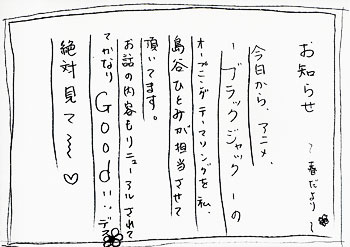 お知らせ
~春だより~
今日から、アニメ、
「ブラックジャック」の
オープニングテーマソングを私、
島谷ひとみが担当させて
頂いてます。
お話の内容もリニューアルされて
てかなりGoodい:デス
絶対見て〜〜♡